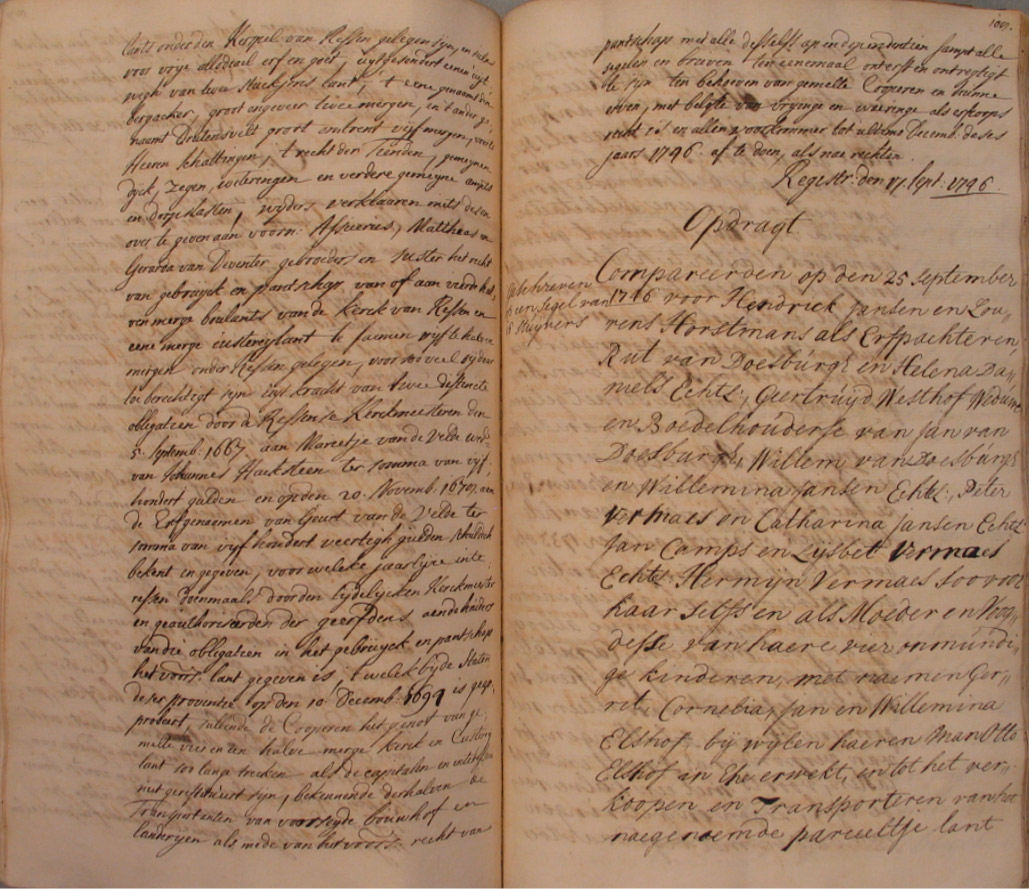 lants onder den Kerspel van Ressen gelegen sijn, en
voor vrye allodiael erf en goet, uytgesondert eenen uyt
wegh van twe stuckjens lant, 't eene genaemt den
bergacker, groot ongeveer twee mergen, en 't ander ge,,
naamt Drulensvelt groot omtrent vijf mergen, voorts
Heeren schattingen, 't recht der Tienden, gemeynen
dyck, zegen, weteringen en verdere gemeyne ampts
en dorpslasten, wyders verklaaren mits desen
over te geven aan voorn: Asueerus, Matthias en
Gerarda van Deventer gebroeders en suster het recht
van gebruyck en pantschap, van of aan vierde half,
ven merge boulants van de kerck van Ressen en
eene merge custerylant te saemen vijftehalve
mergen onder Ressen gelegen, voor soo veel sy daar
toe berechtigt sijn uyt kracht van twee distincte
obligatien door de Ressense Kerckmeesteren den
5. Septemb: 1667. aan Marretje van de Velde wed:
van Johannes Haeksteen ter somma van vijf,
hondert gulden en op den 20. Novemb. 1670. aen
de Erfgenaemen van Geurt van de Velde ter
somma van vijf hondert veertigh gulden schuldich
bekent en gegeven, voor welcke jaarlijxe inte
ressen doenmaals door den tydelycken Kerckmeester
en geauthoriseerden der geerfdens aen de houders
van die obligatien in het gebruyck en pantschap
het voors: lant gegeven is, 't welck by de Staten
deser provintie op den 10. Decemb: 1691 is geap,
probeert, sullende de Cooperen het genot van ge,
melte vier en een halve merge kerck en Custery
lant soo lange trecken als de capitalen en intressen
niet gerestitueert sijn, bekennende derhalven de
Transportanten van voorseyde bouwhof en
landeryen als mede van het voors: recht van
1001.
pantschap met alle desselfs ap en dependentien sampt alle
segelen en brieven ten eenemaal onterft en ontregtigt
te sijn ten behoeven van gemelte Coperen en hunne
erven, met belofte van vryinge en waeringe als erfkoops
recht is en allen voorkommer tot ultimo Decemb. deses
jaars 1746. af te doen, als nae rechten.
Registr: den 17. Sept. 1746.
Opdragt
Geschreven
op een segel van
6 stuyvers
Compareerden op den 25 September
1746 voor Hendrick Jansen en Lou,,
rens Horstmans als Erfpachteren,
Rut van Doesburgh en Helena Da,,
niels Echtel:, Geertruyd Westhof Weduwe
en Boedelhouderse van Jan van
Doesburgh, Willem van Doesburgh
en Willemina Jansen Echtel:, Peter
Vermaes en Catharina Jansen Echtel
Jan Camps en Lysbett Vermaes
Echtel: Hermyn Vermaes soo voor
haar selfs en als Moeder en Voog,,
desse van haere vier onmundi,,
ge kinderen, met naemen Ger,,
ret, Cornelia, Jan en Willemina
Elshof, bij wylen haeren Man Otto
Elshof in Ehe erwekt, en tot het ver,,
koopen en Transporteren van het
naegenoemde parceeltje lant